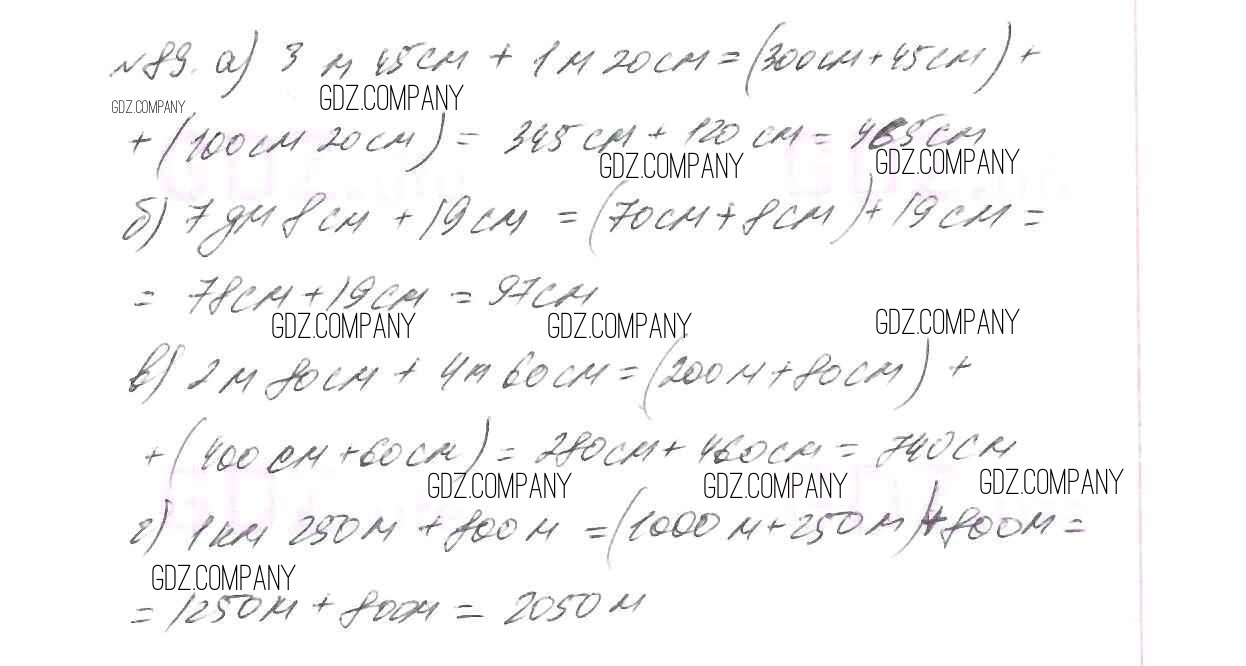 №89. а) 3 м 45см + 1 м 20см = (300см + 45см) +
GDZ.COMPANY GDZ.COMPANY
+ (100см 20см) = 345см + 120 см = 465см
GDZ.COMPANY GDZ.COMPANY
б) 7дм 8см + 19см = (70см + 8см) + 19см =
= 78см + 19см = 97см
GDZ.COMPANY GDZ.COMPANY GDZ.COMPANY
в) 2м 80см + 4м 60см = (200м + 80см) +
+ (400см + 60см) = 280см + 460см = 740см
GDZ.COMPANY GDZ.COMPANY GDZ.COMPANY
г) 1км 250м + 800м = (1000м + 250м) + 800м =
GDZ.COMPANY
= 1250м + 800м = 2050м